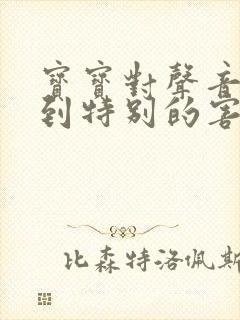 寶寶對聲音
到特別的害
比森特洛佩斯